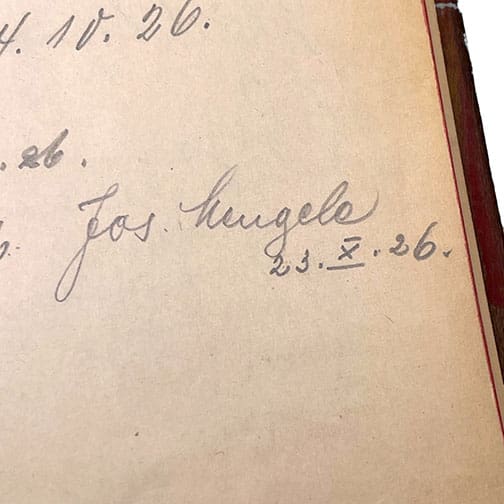 4. 10. 26.
. 26.
Jos. Mengele
23. X. 26.